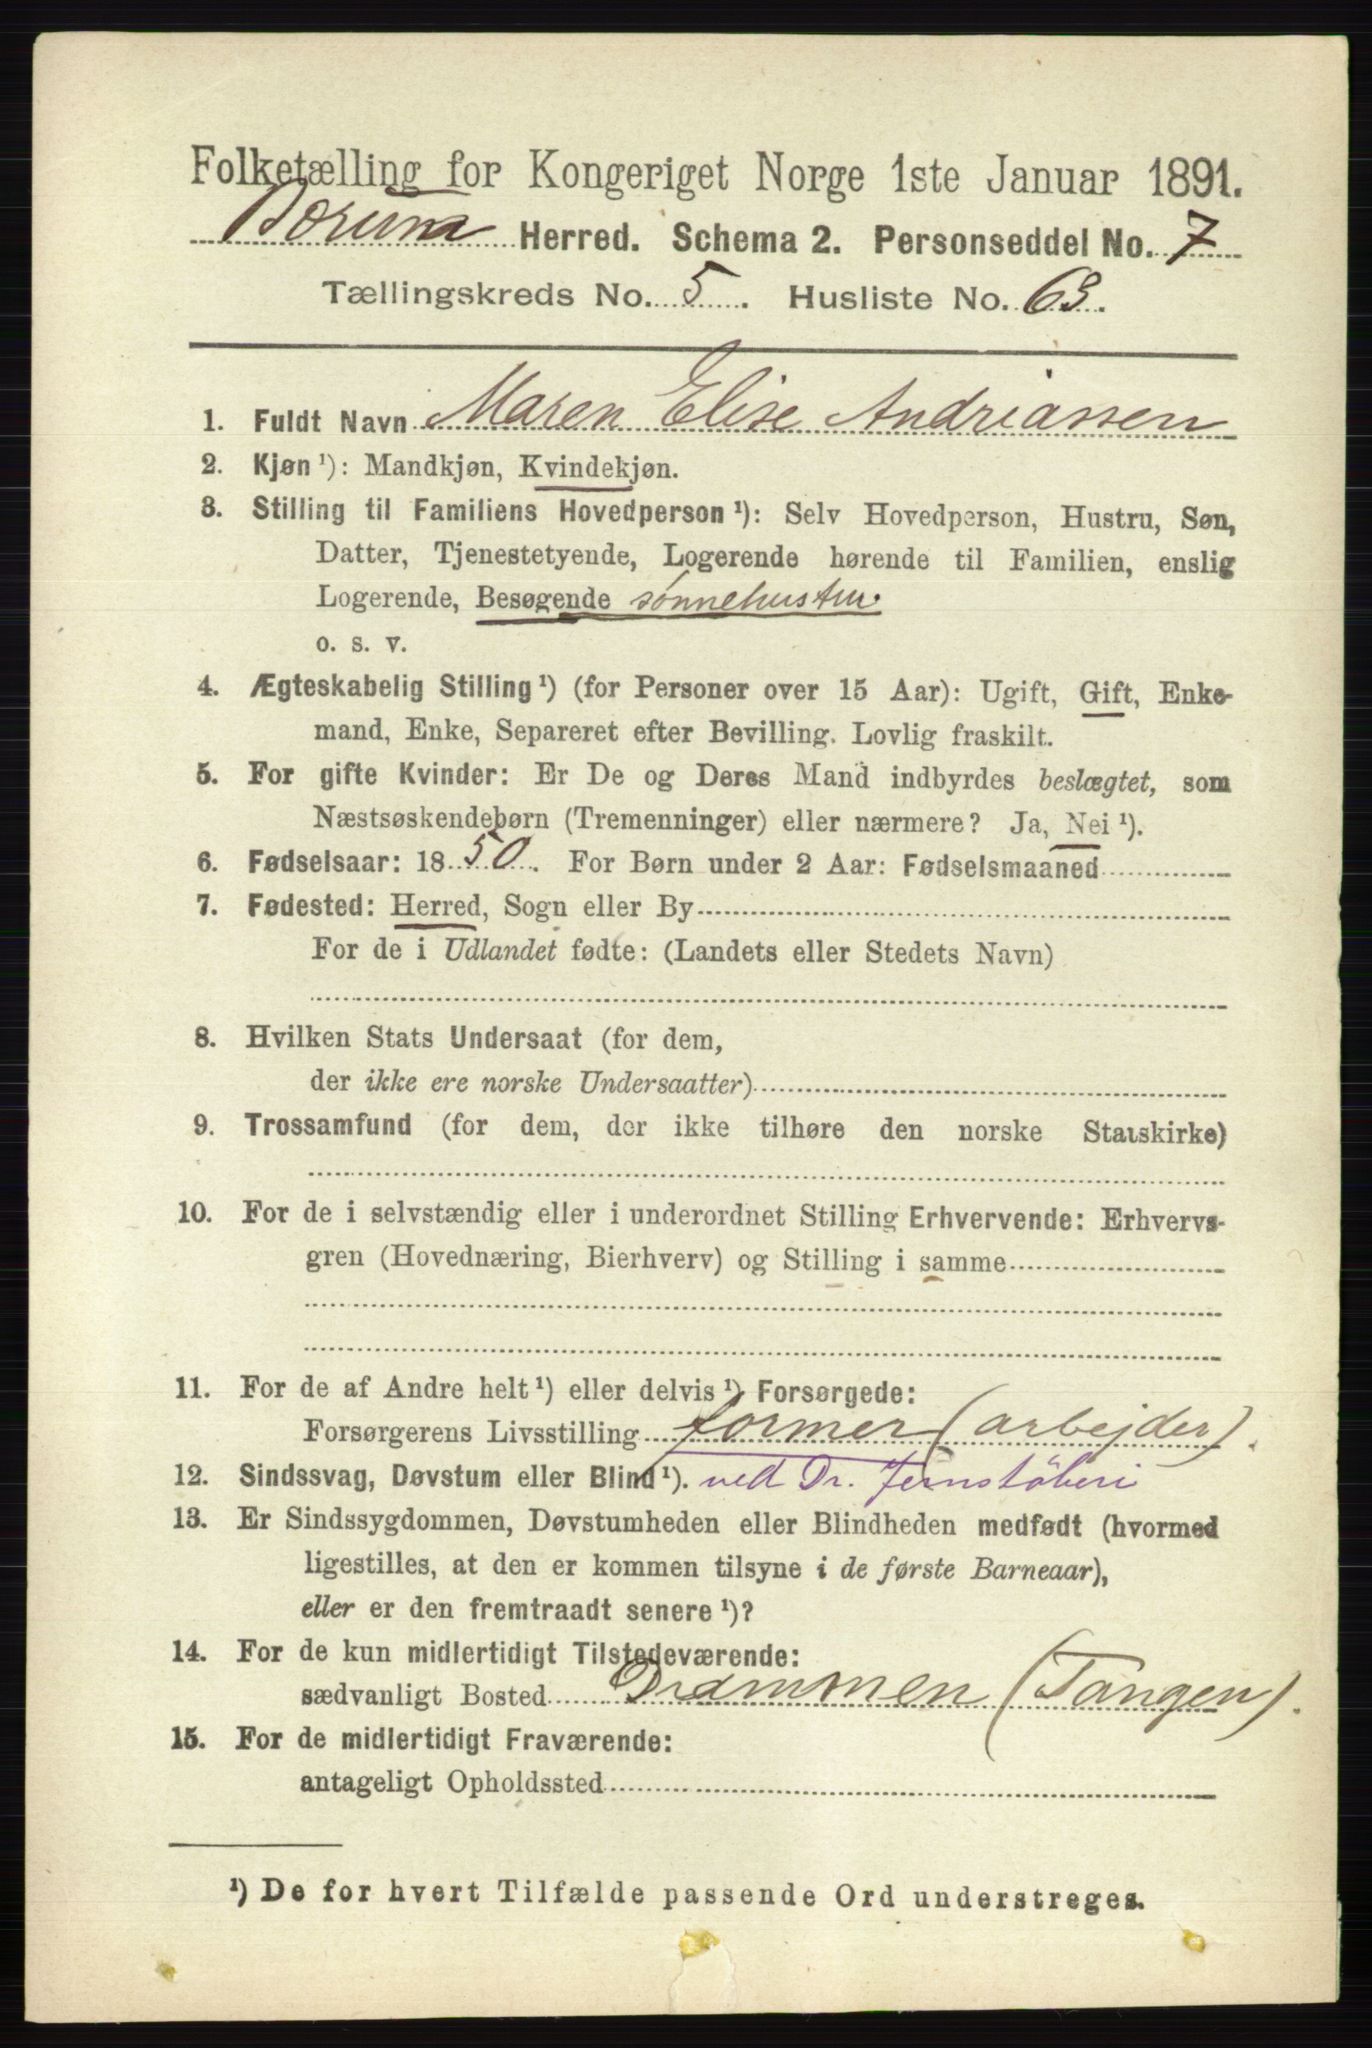 Folketælling for Kongeriget Norge 1ste Januar 1891.
Bærum Herred. Schema 2. Personseddel No. 7
Tællingskreds No. 5. Husliste No. 63.
1. Fuldt Navn Maren Elise Andriassen
2. Kjøn ¹): Mandkjøn, Kvindekjøn.
3. Stilling til Familiens Hovedperson ¹): Selv Hovedperson, Hustru, Søn,
Datter, Tjenestetyende, Logerende hørende til Familien, enslig
Logerende, Besøgende sønnehustru
o. s. v.
4. Ægteskabelig Stilling ¹) (for Personer over 15 Aar): Ugift, Gift, Enke-
mand, Enke, Separeret efter Bevilling. Lovlig fraskilt.
5. For gifte Kvinder: Er De og Deres Mand indbyrdes beslægtet, som
Næstsøskendebørn (Tremenninger) eller nærmere? Ja, Nei ¹).
6. Fødselsaar: 1850. For Børn under 2 Aar: Fødselsmaaned
7. Fødested: Herred, Sogn eller By
For de i Udlandet fødte: (Landets eller Stedets Navn)
8. Hvilken Stats Undersaat (for dem,
der ikke ere norske Undersaatter)
9. Trossamfund (for dem, der ikke tilhøre den norske Statskirke)
10. For de i selvstændig eller i underordnet Stilling Erhvervende: Erhvervs-
gren (Hovednæring, Bierhverv) og Stilling i samme
11. For de af Andre helt ¹) eller delvis ¹) Forsørgede:
Forsørgerens Livsstilling former (arbejder).
12. Sindssvag, Døvstum eller Blind ¹). ved Dr. Jernstöberi
13. Er Sindssygdommen, Døvstumheden eller Blindheden medfødt (hvormed
ligestilles, at den er kommen tilsyne i de første Barneaar),
eller er den fremtraadt senere ¹)?
14. For de kun midlertidigt Tilstedeværende:
sædvanligt Bosted Drammen (Tangen).
15. For de midlertidigt Fraværende:
antageligt Opholdssted
¹) De for hvert Tilfælde passende Ord understreges.